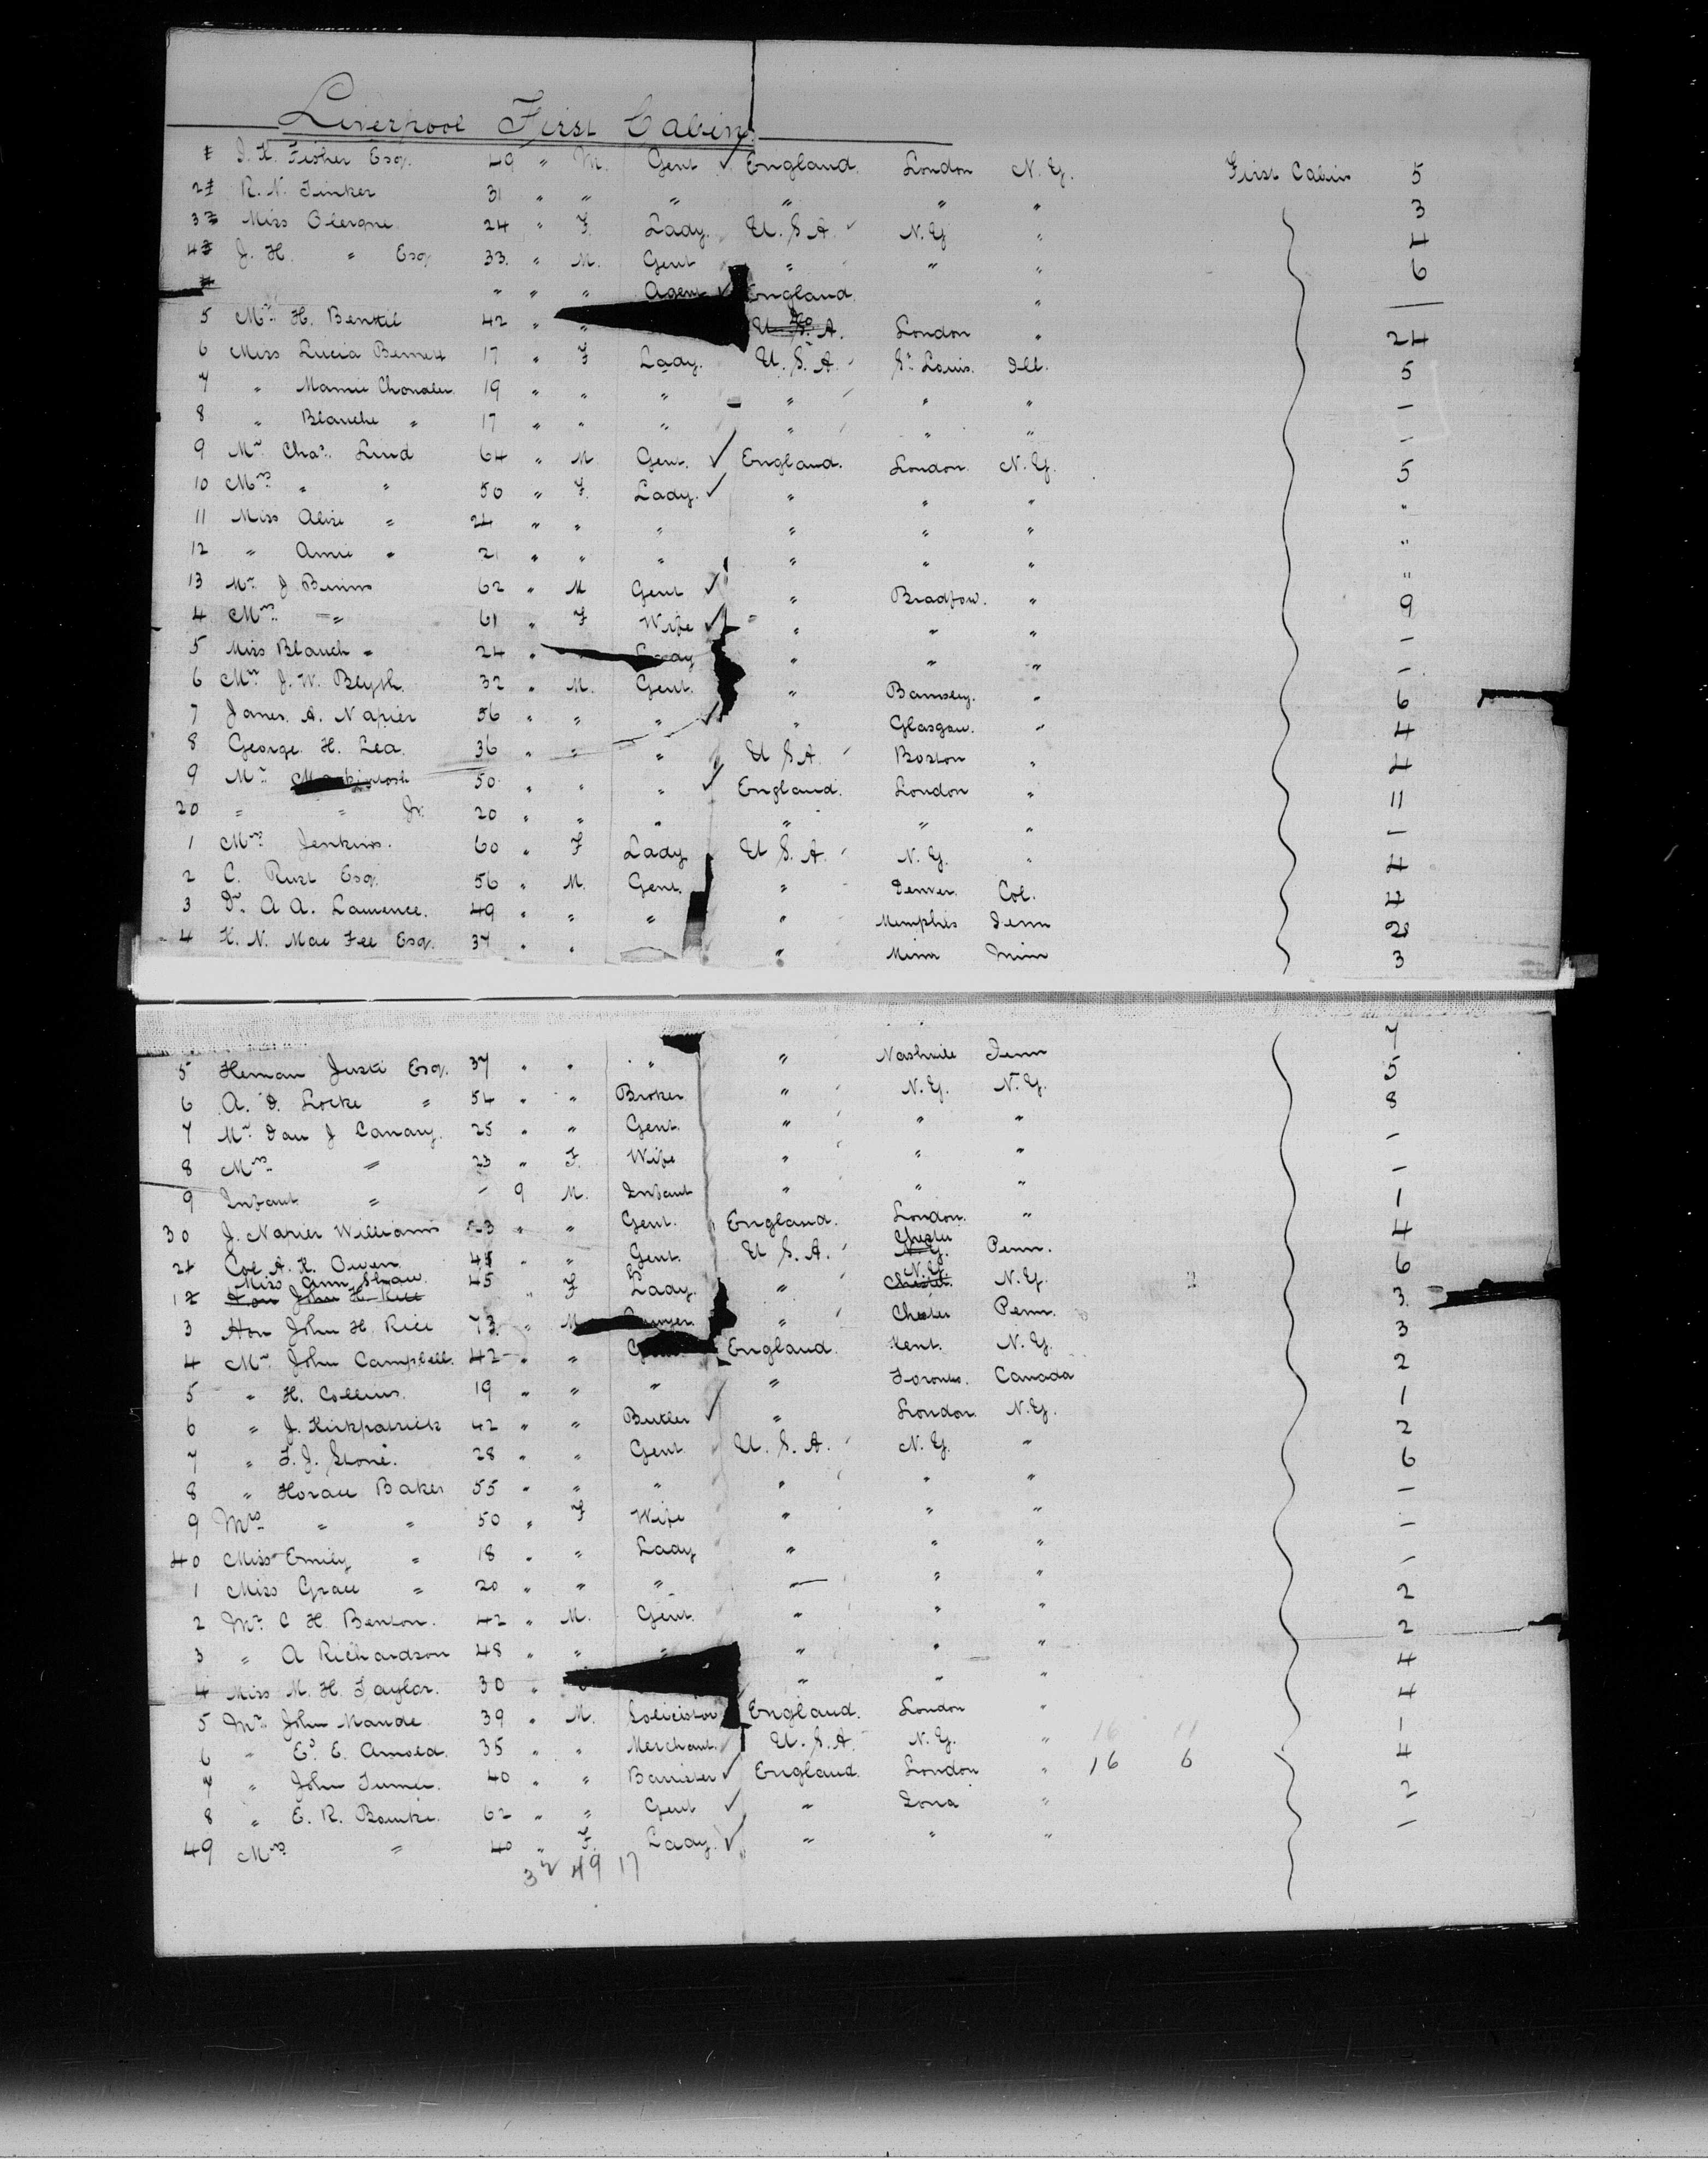 Liverpool First Cabin
1 J. K. Fisher Esq. 49 " M. Gent ✓ England. London N.Y. First Cabin 5
2 R. N. Tinker 31 " " " " " " 3
3 Miss Clergue 24 " F. Lady. U.S.A. N.Y " 4
4 J. H. " Esq 33. " M. Gent " " " 6
" " " Agent ✓ England. "
5 Mr. H. 42 " " U.S.A. London " 24
6 Miss Lucia Bennett 17 " F Lady. U.S.A. St. Louis. Ill. 5
7 " Mamie 19 " " " " " " –
8 " Blanche " 17 " " " " " " –
9 Mr. Chas. Lind 64 " M Gent. ✓ England. London. N.Y. 5
10 Mrs. " " 50 " F. Lady. ✓ " " " "
11 Miss Alice " 24 " " " " " " "
12 " Amie " 21 " " " " " " "
13 Mr. J Binns 62 " M Gent ✓ " Bradfow. " 9
4 Mrs. " 61 " F Wife ✓ " " " –
5 Miss Blanch " 24 " Lady " " " –
6 Mr. J. W. Blyth. 32 " M. Gent. " Barnsley. " 6
7 James. A. Napier 56 " " " ✓ " Glasgow. " 4
8 George. H. Lea. 36 " " " U S A Boston " 4
9 Mr. Mackintosh 50. " " " ✓ England. London " 11
20 " " Jr. 20 " " " " " " –
1 Mrs. Jenkins. 60 " F Lady U S. A. N.Y. " 4
2 C. Rust Esq. 56 " M. Gent. " Denver. Col. 4
3 Dr. A A. Lawrence. 49 " " " " Memphis Tenn 2
4 K. N. Mac Fee Esq. 37 " " " Minn Minn 3
5 Heman Justi Esq. 37 " " " " Nashville Tenn 7
6 A. D. Locke " 54 " " Broker " N.Y. N.Y. 5
7 Mr. Dan J Canary. 25 " " Gent. " " " 8
8 Mrs. " 23 " F. Wife " " " –
9 Infant " – 9 M. Infant " " " –
30 J. Napier Williams 23 " " Gent. England. London. " 1
Col A. K. Owen 45 " " Gent. U S. A. Chester N.Y. Penn. 4
Miss Ann Shaw. 45 " F Lady. " N.Y. Chester. N.Y. 6
Hon John H. Rice
3 Hon John H. Rice 73. " M Lawyer " Chester Penn. 3
4 Mr. John Campbell. 42 " " England. Kent. N.Y. 3
5 " H. Collins. 19 " " " " Toronto. Canada 2
6 " J. Kirkpatrick 42 " " Butler ✓ " London. N.Y. 1
7 " F. J. Stone. 28 " " Gent U. S. A. N.Y. " 2
8 " Horace Baker 55 " " " " " " 6
9 Mrs " " 50 " F Wife " " " –
40 Miss Emily " 18 " " Lady " " " –
1 Miss Grace " 20 " " " " " " –
2 Mr. C H. Benton. 42 " M. Gent. " " " 2
3 " A Richardson 48 " " " " " " 2
4 Miss M. H. Taylor. 30 " " " " 4
5 Mr. John Mande. 39 " M. Solicistor England. London " 4
6 " Ed. E. Arnold. 35 " " Merchant. U. S. A. N.Y. " 16 11 1
7 " John Turner. 40 " " Barrister ✓ England. London " 16 6 4
8 " E. R. Bourke. 62 " " Gent ✓ " Iona " 2
49 Mrs. " 40 " F. Lady. ✓ " " " –
32 49 17